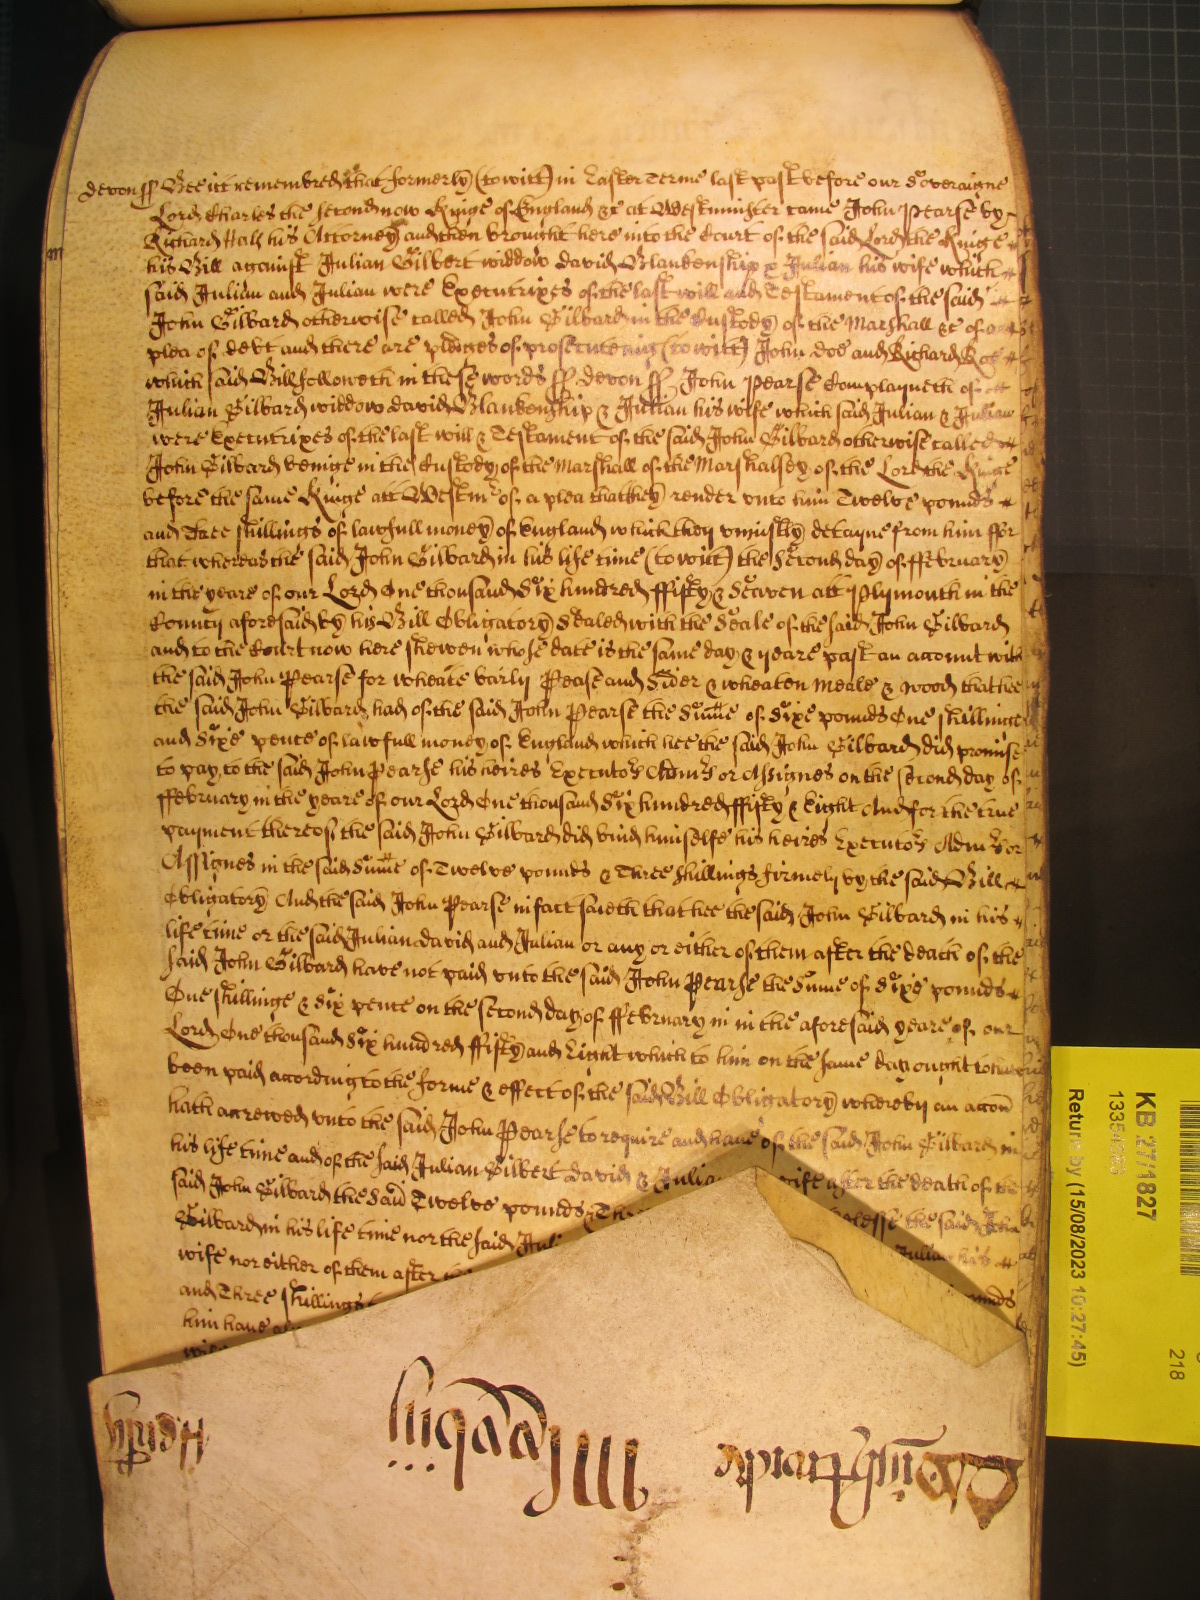 devon ss Bee itt remembred that formerly (to witt) in Easter Terme last past before our Soveraigne
Lord Charles the second now Kinge of England &c at Westminster came John Pearse by
Richard Hals his Attorney and then brought here into the Court of the said Lord the Kinge
his Bill against Julian Gilbert widdow david Blankenship & Julian his wife which
said Julian and Julian were Executrixes of the last will and Testament of the said
John Gilbard otherwise called John Gilbard in the Custody of the Marshall &c of a
plea of debt and there are pledges of prosecuteing (to witt) John doe and Richard Roe
which said Bill followeth in these words ss devon ss John Pearse Complayneth of
Julian Gilbard widdow david Blankenship & Julian his wife which said Julian & Julian
were Executrixes of the last will & Testament of the said John Gilbard otherwise called
John Gilbard beinge in the Custody of the Marshall of the Marshalsey of the Lord the Kinge
before the same Kinge att Westmr of a plea that they render unto him Twelve pounds
and Three shillings of lawfull money of England which they uniustly detayne from him ffor
that whereas the said John Gilbard in his life time (to witt) the second day of ffebruary
in the yeare of our Lord One thousand Six hundred ffifty & Seaven att Plymouth in the
County aforesaid by his Bill Obligatory Sealed with the Seale of the said John Gilbard
and to the Court now here shewen whose date is the same day & yeare past an account with
the said John Pearse for wheate barly Pease and Sider & wheaten meale & wood that hee
the said John Gilbard had of the said John Pearse the Sume of Sixe pounds One shillinge
and Sixe pence of lawfull money of England which hee the said John Gilbard did promise
to pay to the said John Pearse his heires Executors Admrs or Assignes on the second day of
ffebruary in the yeare of our Lord One thousand Six hundred ffifty & Eight And for the true
payment thereof the said John Gilbard did bind himselfe his heires Executors Admrs or
Assignes in the said Sume of Twelve pounds & Three shillings firmely by the said Bill
Obligatory And the said John Pearse in fact saieth that hee the said John Gilbard in his
life time or the said Julian david and Julian or any or either of them after the death of the
said John Gilbard have not paid unto the said John Pearse the Sume of Sixe pounds
One shillinge & Six pence on the second day of ffebruary in in the aforesaid yeare of our
Lord One thousand Six hundred ffifty and Eight which to him on the same day ought to have
been paid according to the forme & effect of the said Bill Obligatory whereby an accon
hath accrewed unto the said John Pearse to require and have of the said John Gilbard in
his life time and of the said Julian Gilbert david & Julia wife after the death of the
said John Gilbard the said Twelve pounds & Th the said John
Gilbard in his life time nor the said Juli Julian his
wife nor either of them after
and Three shillings
him have
KB 27/1827
Return by (15/08/2023 10:27:45)
218